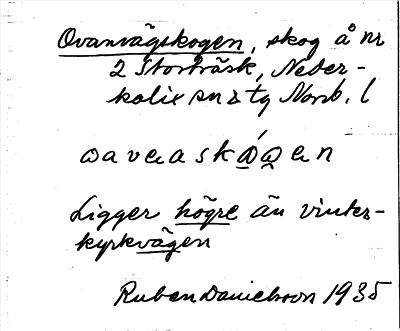 Ovanvägskogen, skog å nr
2 Storträsk, Neder-
kalix sn o tg Norrb. l
Ligger högre än vinter-
kyrkvägen
Ruben Danielsson 1935